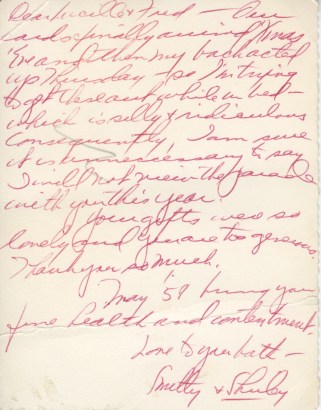 Dear Lucille & Fred — Our
cards finally arriving Xmas
Eve and then my back acted
up Thursday — so I'm trying
to get these out while in bed —
which is silly & ridiculous
consequently, I am sure
it is unnecessary to say
I will not view the parade
with you this year.
Your gifts were so
lovely and you are too generous.
Thank you so much.
May '59 bring you
fine health and contentment.
Love to you both —
Smitty & Shirley